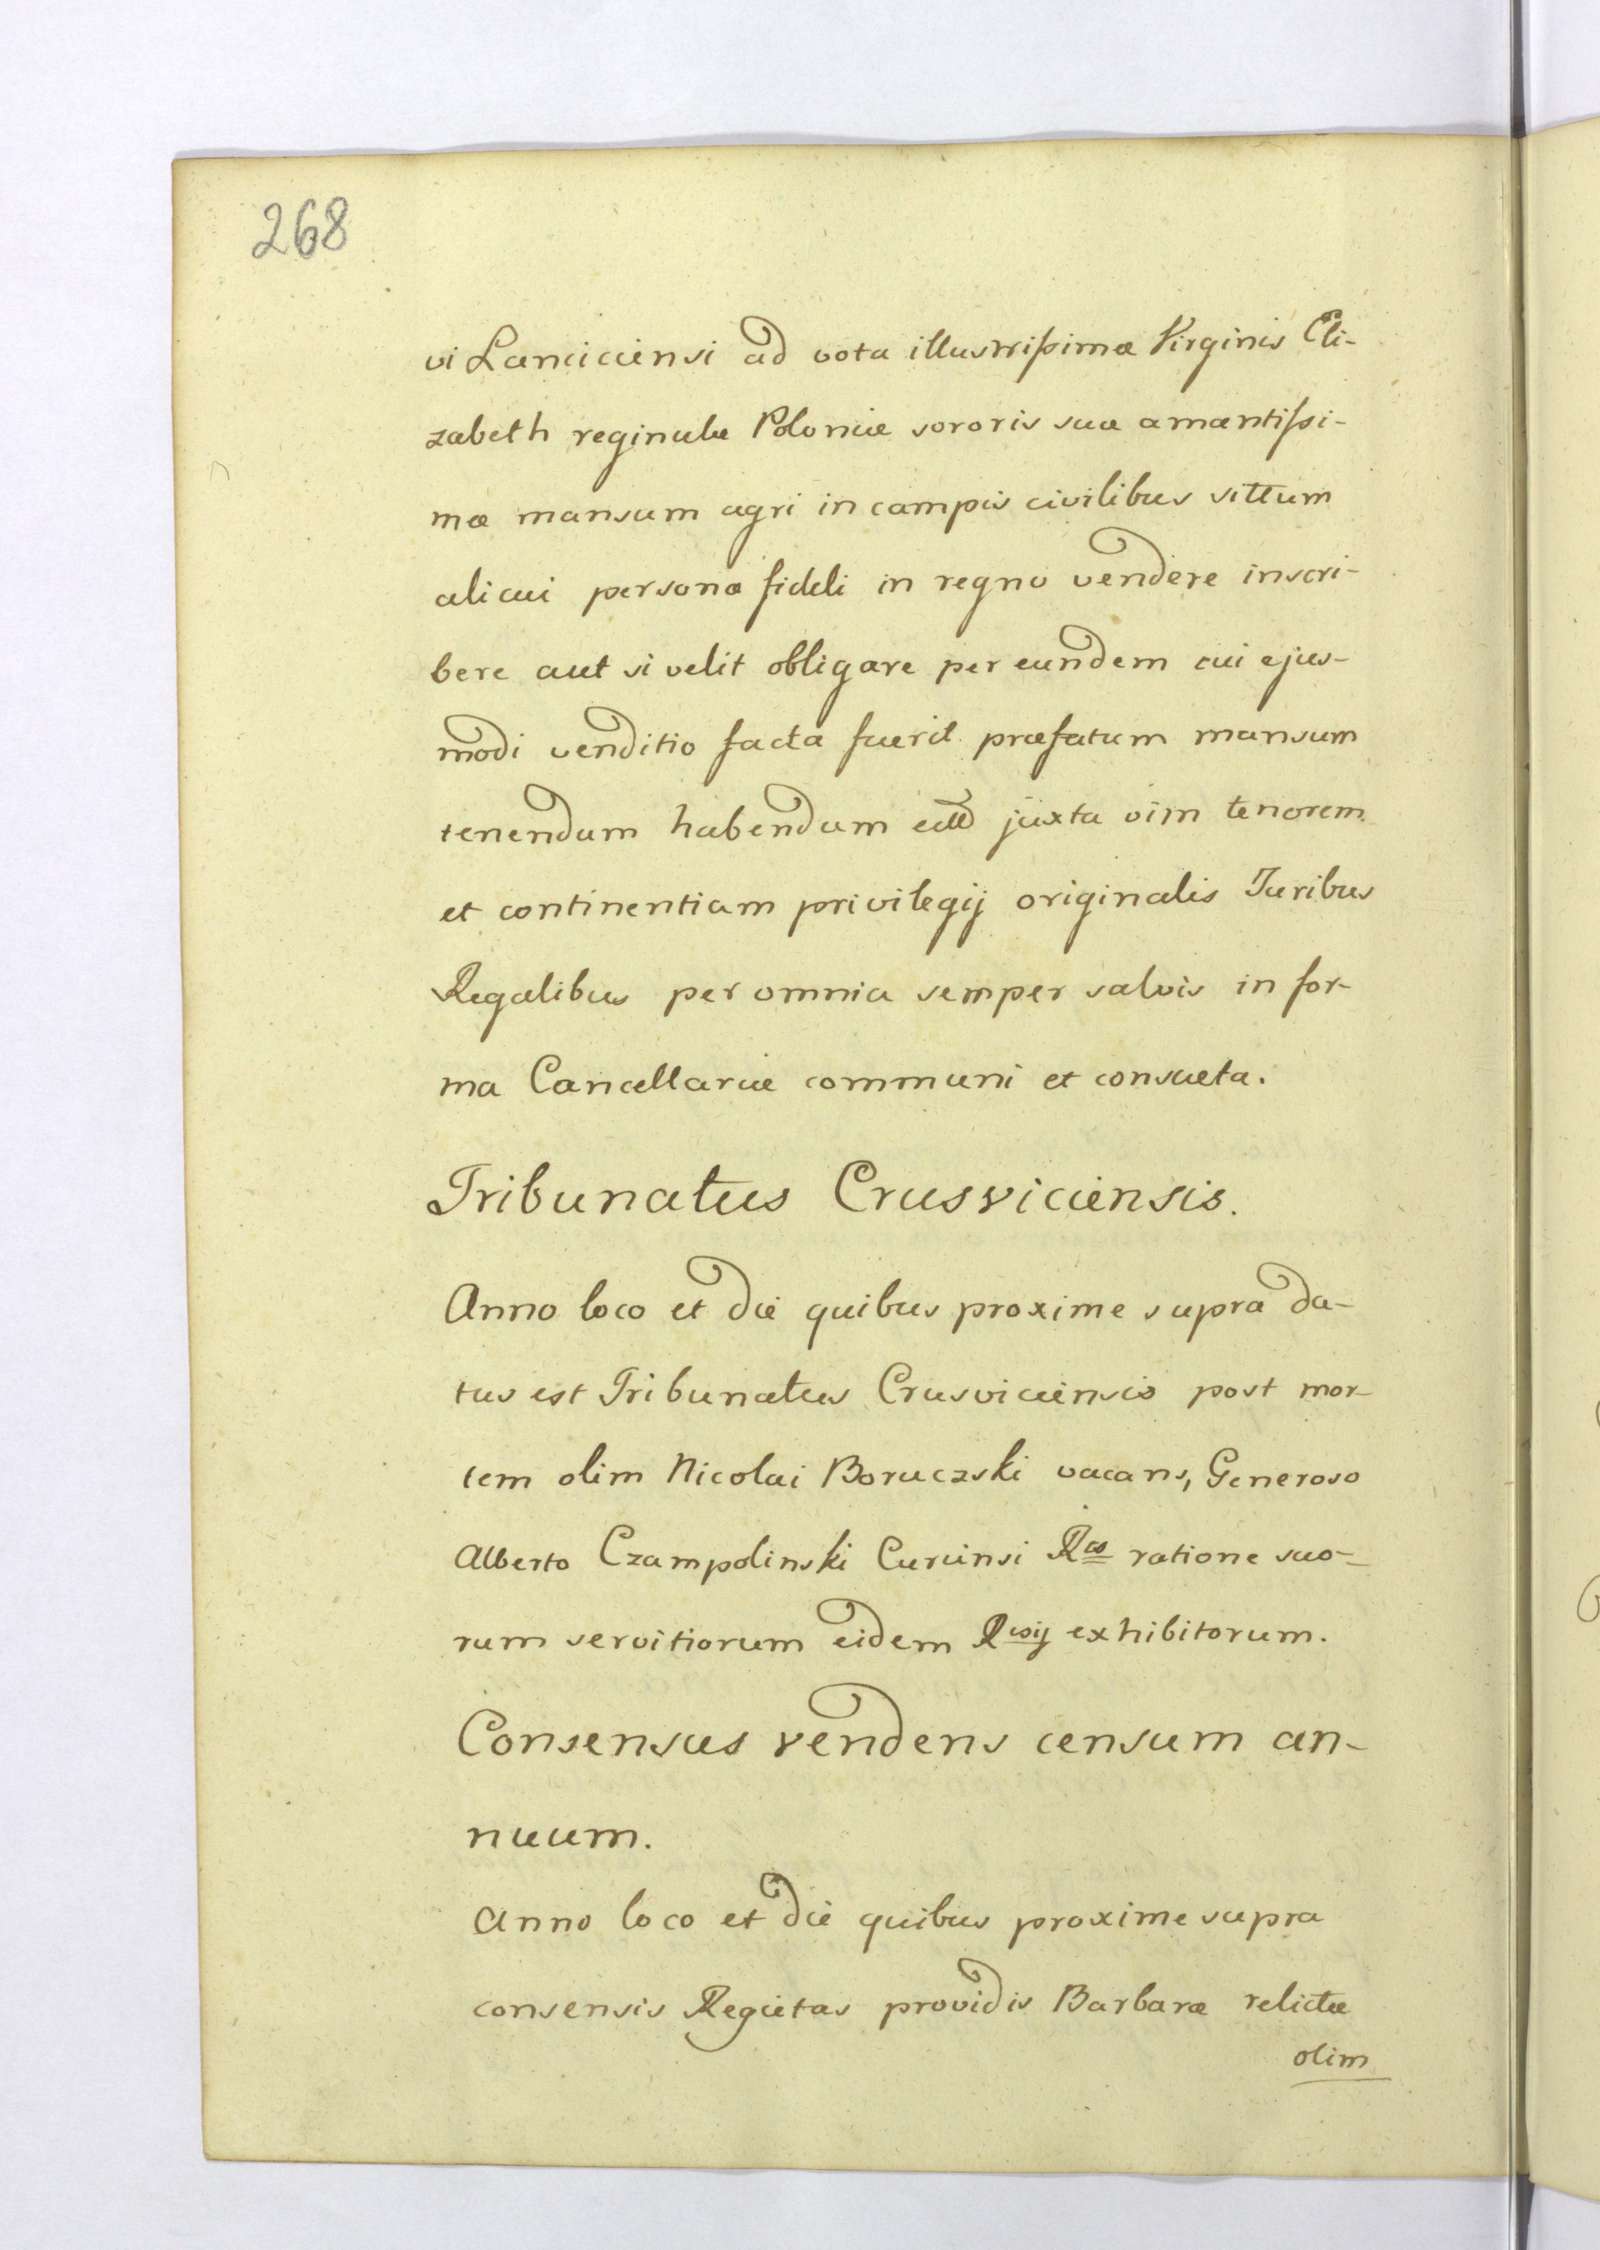 268
vi Lanciciensi ad vota illustrissimæ Virginis Eli-
zabeth reginulæ Poloniæ sororis suæ amantissi-
mæ mansum agri in campis civilibus sittum
alicui personæ fideli in regno vendere inscri-
bere aut si velit obligare per eundem cui ejus-
modi venditio facta fuerit præfatum mansum
tenendum habendum juxta vim tenorem
et continentiam privilegij originalis Juribus
Regalibus per omnia semper salvis in for-
ma Cancellariæ communi et consueta.
Tribunatus Crusviciensis.
Anno loco et die quibus proxime supra da-
tus est Tribunatus Crusviciensis post mor-
tem olim Nicolai Boruczski vacans, Generoso
Alberto Czampolinski Curiensi ratione suo-
rum servitiorum eidem exhibitorum.
Consensus vendens censum an-
nuum.
Anno loco et die quibus proxime supra
consensis Regietas providis Barbaræ relictæ
olim